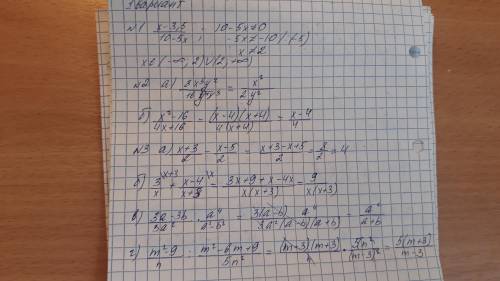 Вариант
№1 (x-3,5)/(10-5x) ; 10-5x≠0
-5x≠-10 /(-5)
x≠2
x∈(-∞, 2)∪(2, ∞)
= x²/(2y²)
б) (x²-16)/(4x+16) = ((x-4)(x+4))/(4(x+4)) = (x-4)/4
№3 а) (x+3)/2 - (x-5)/2 = (x+3-x+5)/2 = 4
= (3x+9+x-4x)/(x(x+3)) = 9/(x(x+3))
в) (3a-3b)/(3a²) · a⁴/(a²-b²) = 3(a-b) a⁴/(3a²(a-b)(a+b) = a²/(a+b)
г) (m²-9)/n : (m²-6m+9)/(5n²) = (m-3)(m+3)/n · 5n²/(m-3)²